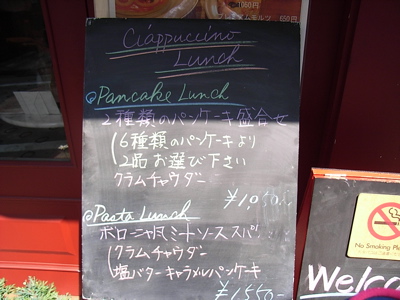 Ciappuccino
Lunch
Pancake Lunch
2種類のパンケーキ盛合せ
(6種類のパンケーキより
2品お選び下さい
クラムチャウダー
¥1,050
Pasta Lunch
ボローニャ風ミートソーススパ
(クラムチャウダー
塩バターキャラメルパンケーキ
¥1550
No Smoking
Welco